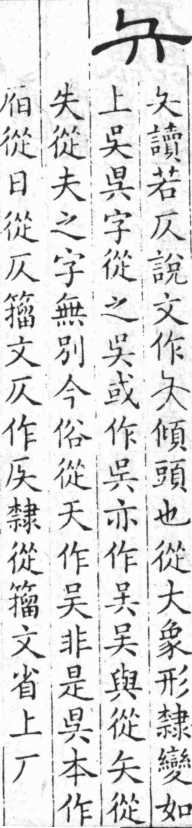 夨
夨讀若仄說文作夨傾頭也從大象形隸變如
上吳昗字從之吳或作呉亦作吴吴與從矢從
失從夫之字無別今俗從天作吴非是昗本作
從日從仄籀文仄作𠨮隸從籀文省上厂